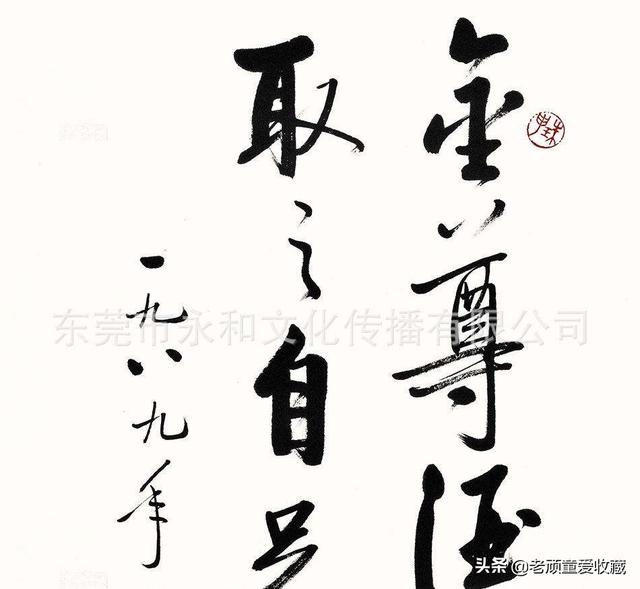 金尊酒
取之自
一九八九年
东莞市永和文化传播有限公司
头条 @老顽童爱收藏